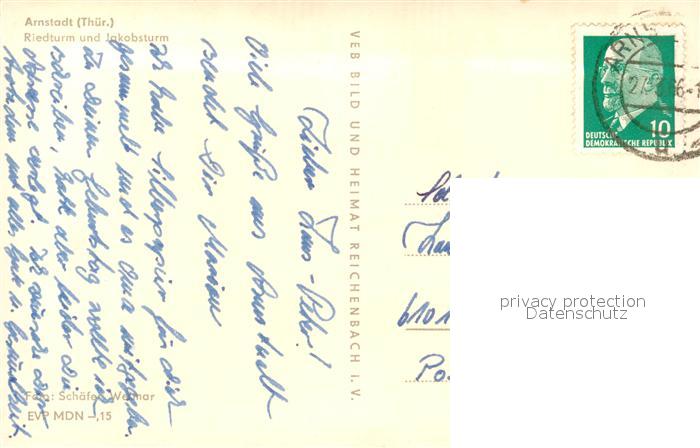 Arnstadt (Thür.)
Riedturm und Jakobsturm
Lieber Hans-Peter!
Viele Grüße aus Arnstadt
sendet Dir Marion
Ich habe Silberpapier für Dich
gesammelt und es Oma mitgegeben.
Zu Deinem Geburtstag wollte ich
schreiben, hatte aber leider die
Adresse verlegt. Ich wünsche Dir
trotzdem noch alles Gute u. Gesundheit.
Foto: Schäfer, Weimar
EVP MDN -,15
VEB BILD UND HEIMAT REICHENBACH i. V.
ARNS
10
DEUTSCHE
DEMOKRATISCHE REPUBLIK
6101
privacy protection
Datenschutz